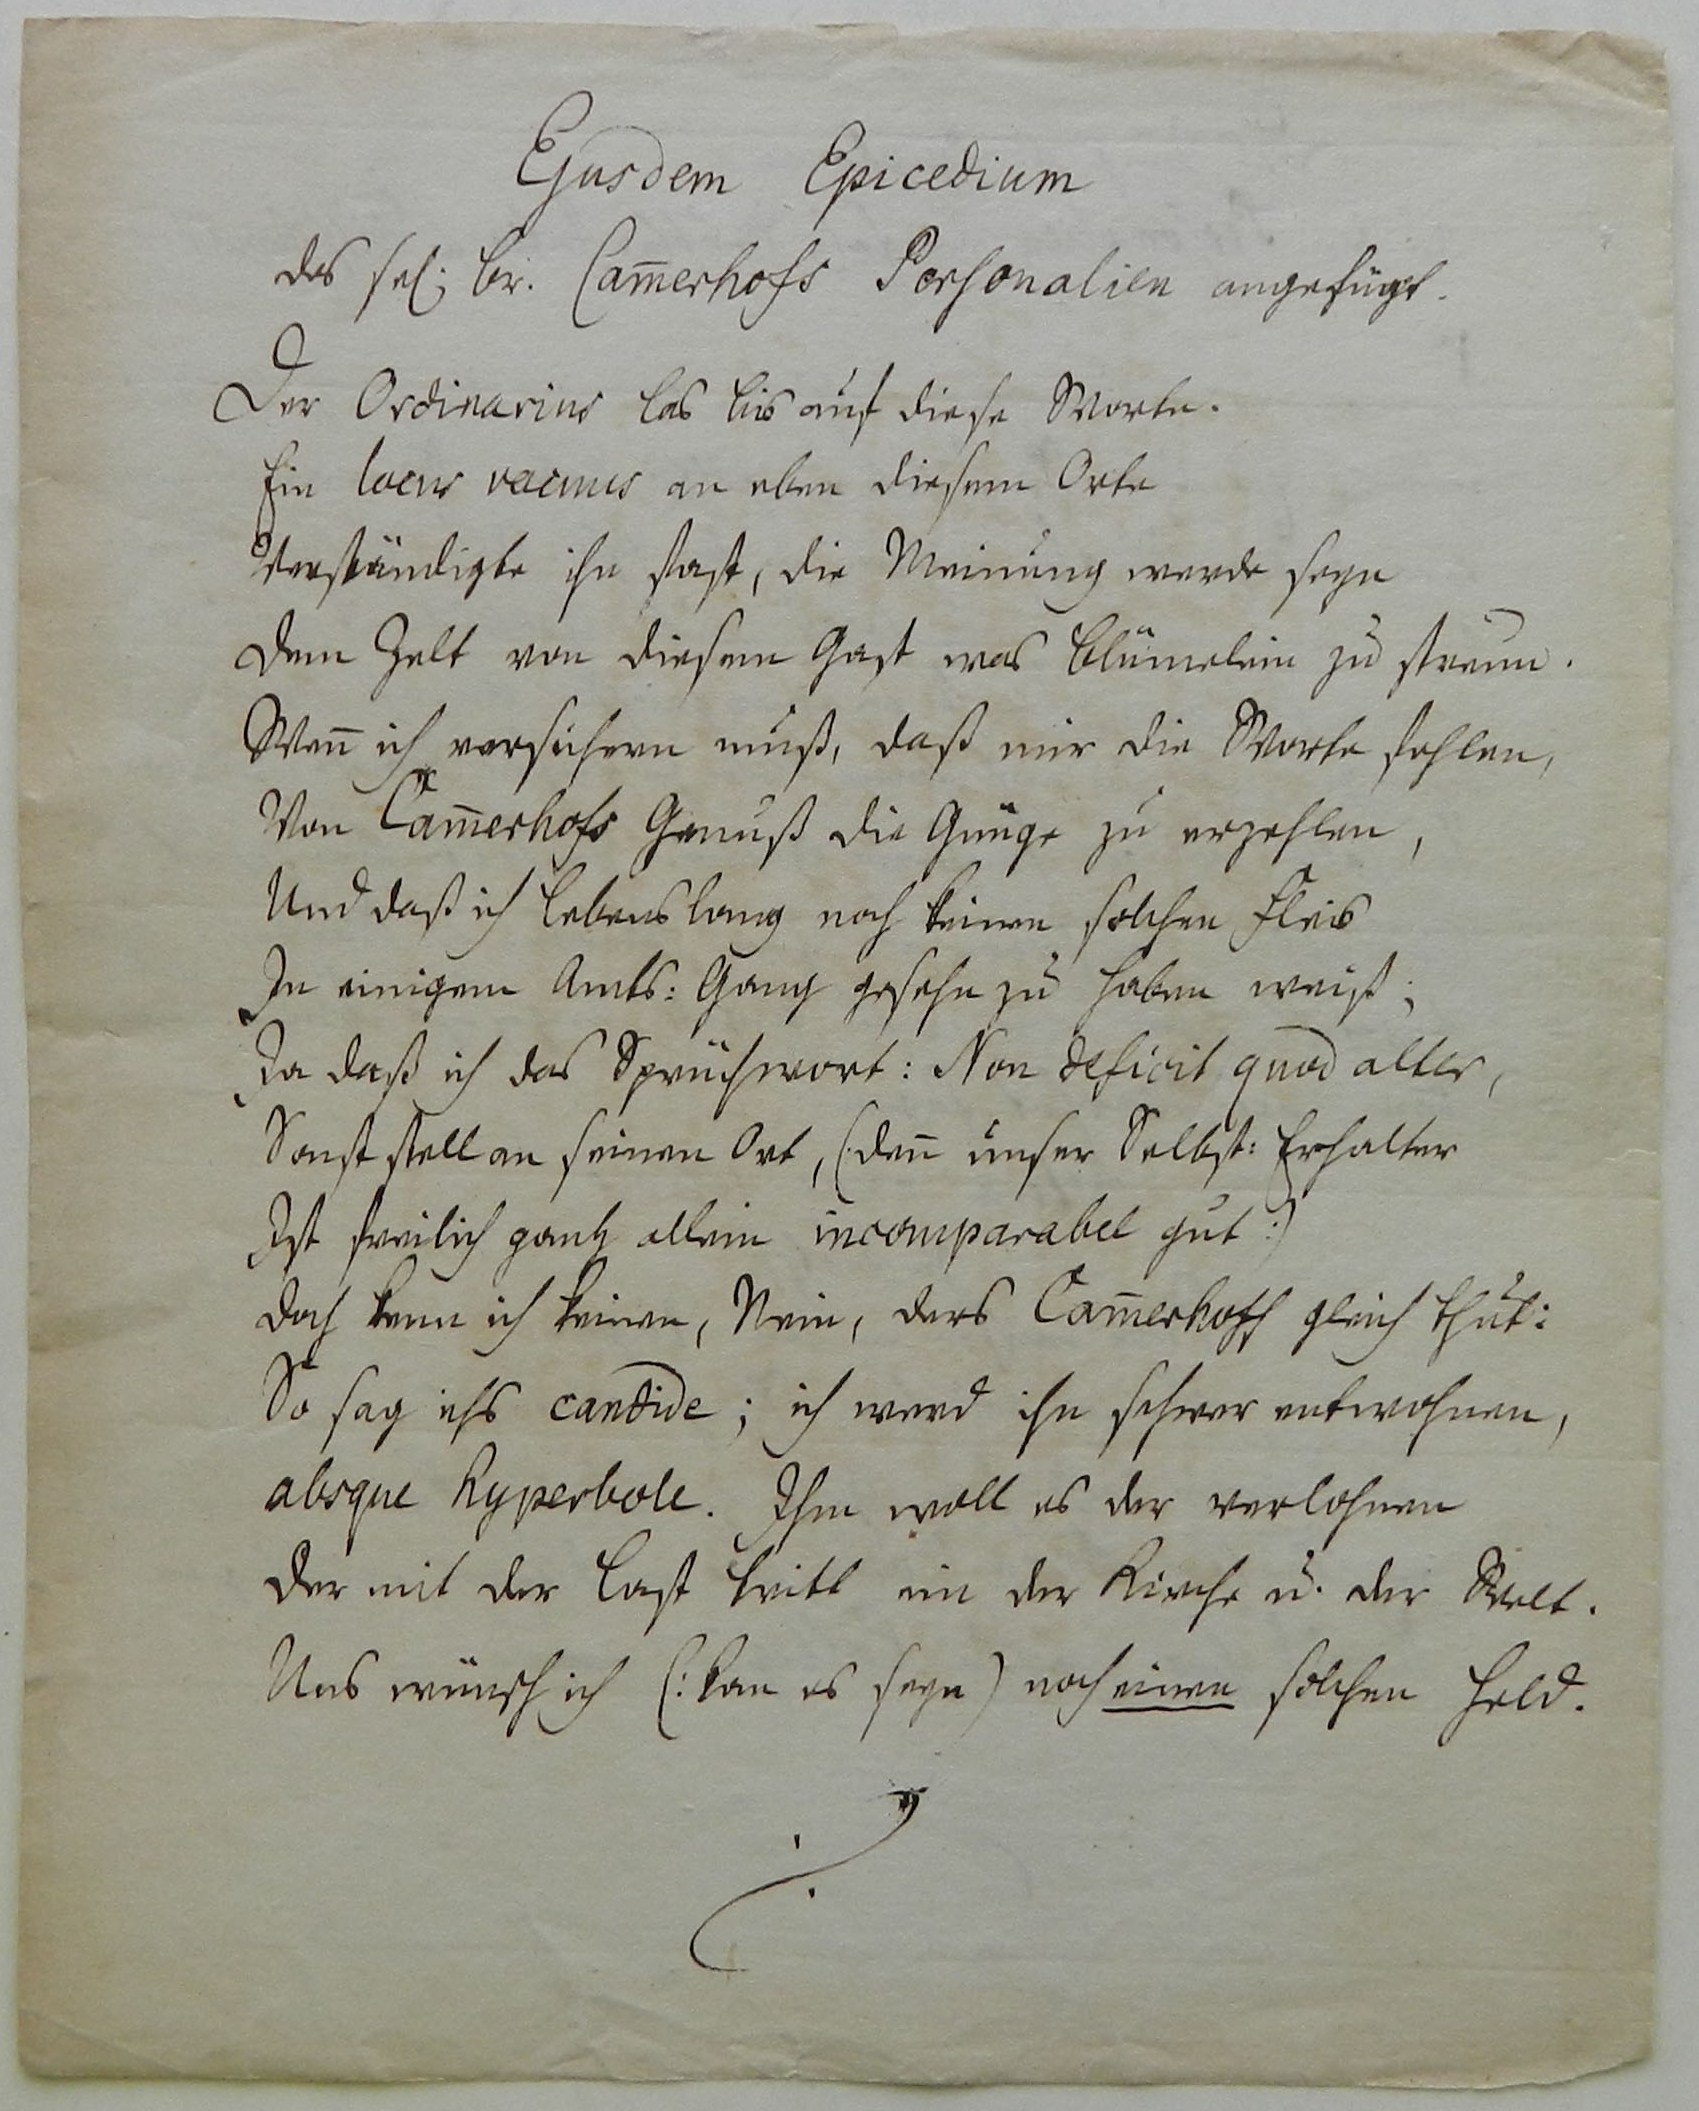 Ejusdem Epicedium
des sel: br. Cam̅erhofs Personalien angefügt.
Der Ordinarius las bis auf diese Worte.
Ein locus vacuus an eben diesem Orte
Verständigte ihn fast, die Meinung werde seyn
dem Zelt von diesem Gast was blümelein zu streun.
Wen̅ ich versichern muß, daß mir die Worte fehlen,
Von Cam̅erhofs Genuß die Gnüge zu erzehlen,
Und daß ich lebenslang noch keinen solchen Fleis
In einigem Amts: Gang gesehn zu haben weiß;
Ja daß ich das Sprüchwort: Non deficit quod alter,
Sonst stell an seinen Ort, (:den̅ unser Selbst: Erhalter
Ist freilich gantz allein incomparabel gut:)
doch kenn ich keinen, Nein, ders Cam̅erhoff gleich thut:
So sag ichs candide; ich werd ihn schwer entwohnen,
absque hyperbole. Ihm woll es der verlohnen
der mit der Last tritt ein der Kirche u. der Welt.
Uns wünsch ich (:kan es seyn) noch einen solchen Held.